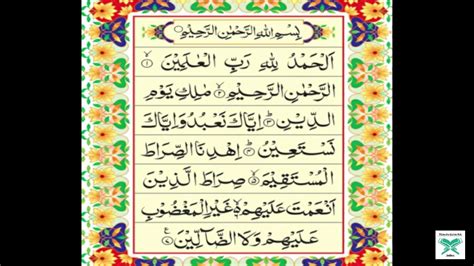 بِسْمِ اللهِ الرَّحْمٰنِ الرَّحِيْمِ
اَلْحَمْدُ لِلّٰهِ رَبِّ الْعٰلَمِيْنَ ۙ﴿۱﴾
الرَّحْمٰنِ الرَّحِيْمِ ۙ﴿۲﴾ مٰلِكِ يَوْمِ
الدِّيْنِ ؕ﴿۳﴾ اِيَّاكَ نَعْبُدُ وَاِيَّاكَ
نَسْتَعِيْنُ ؕ﴿۴﴾ اِهْدِنَا الصِّرَاطَ
الْمُسْتَقِيْمَ ۙ﴿۵﴾ صِرَاطَ الَّذِيْنَ
اَنْعَمْتَ عَلَيْهِمْ ۙ﴿۶﴾ غَيْرِ الْمَغْضُوْبِ
عَلَيْهِمْ وَلَا الضَّآلِّيْنَ ﴿۷﴾